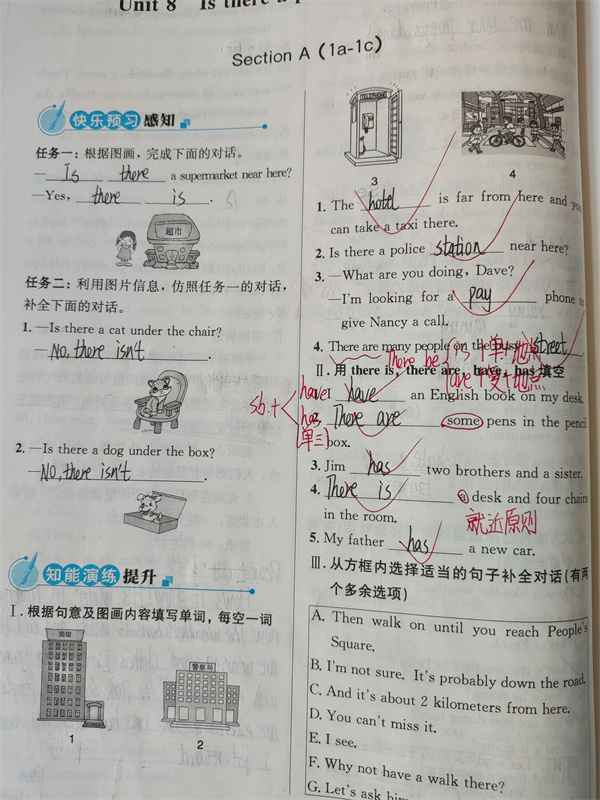 Unit 8 Is there a
Section A (1a-1c)
快乐预习 感知
任务一：根据图画，完成下面的对话。
— Is there a supermarket near here?
—Yes, there is .
超市
任务二：利用图片信息，仿照任务一的对话，
补全下面的对话。
1. —Is there a cat under the chair?
—No, there isn't .
2. —Is there a dog under the box?
—No, there isn't .
知能演练 提升
Ⅰ. 根据句意及图画内容填写单词，每空一词
宾馆
警察局
1
2
TELEPHONE
3
4
1. The hotel is far from here and you
can take a taxi there.
2. Is there a police station near here?
3. —What are you doing, Dave?
—I'm looking for a pay phone to
give Nancy a call.
4. There are many people on the busy street.
There be
is+单+地点
are+复+地点
Ⅱ. 用 there is, there are, have, has 填空
sb.+
have
has
单三
1. I have an English book on my desk.
2. There are some pens in the pencil
box.
3. Jim has two brothers and a sister.
4. There is a desk and four chairs
in the room.
就近原则
5. My father has a new car.
Ⅲ. 从方框内选择适当的句子补全对话(有两
个多余选项)
A. Then walk on until you reach People's
Square.
B. I'm not sure. It's probably down the road.
C. And it's about 2 kilometers from here.
D. You can't miss it.
E. I see.
F. Why not have a walk there?
G. Let's ask